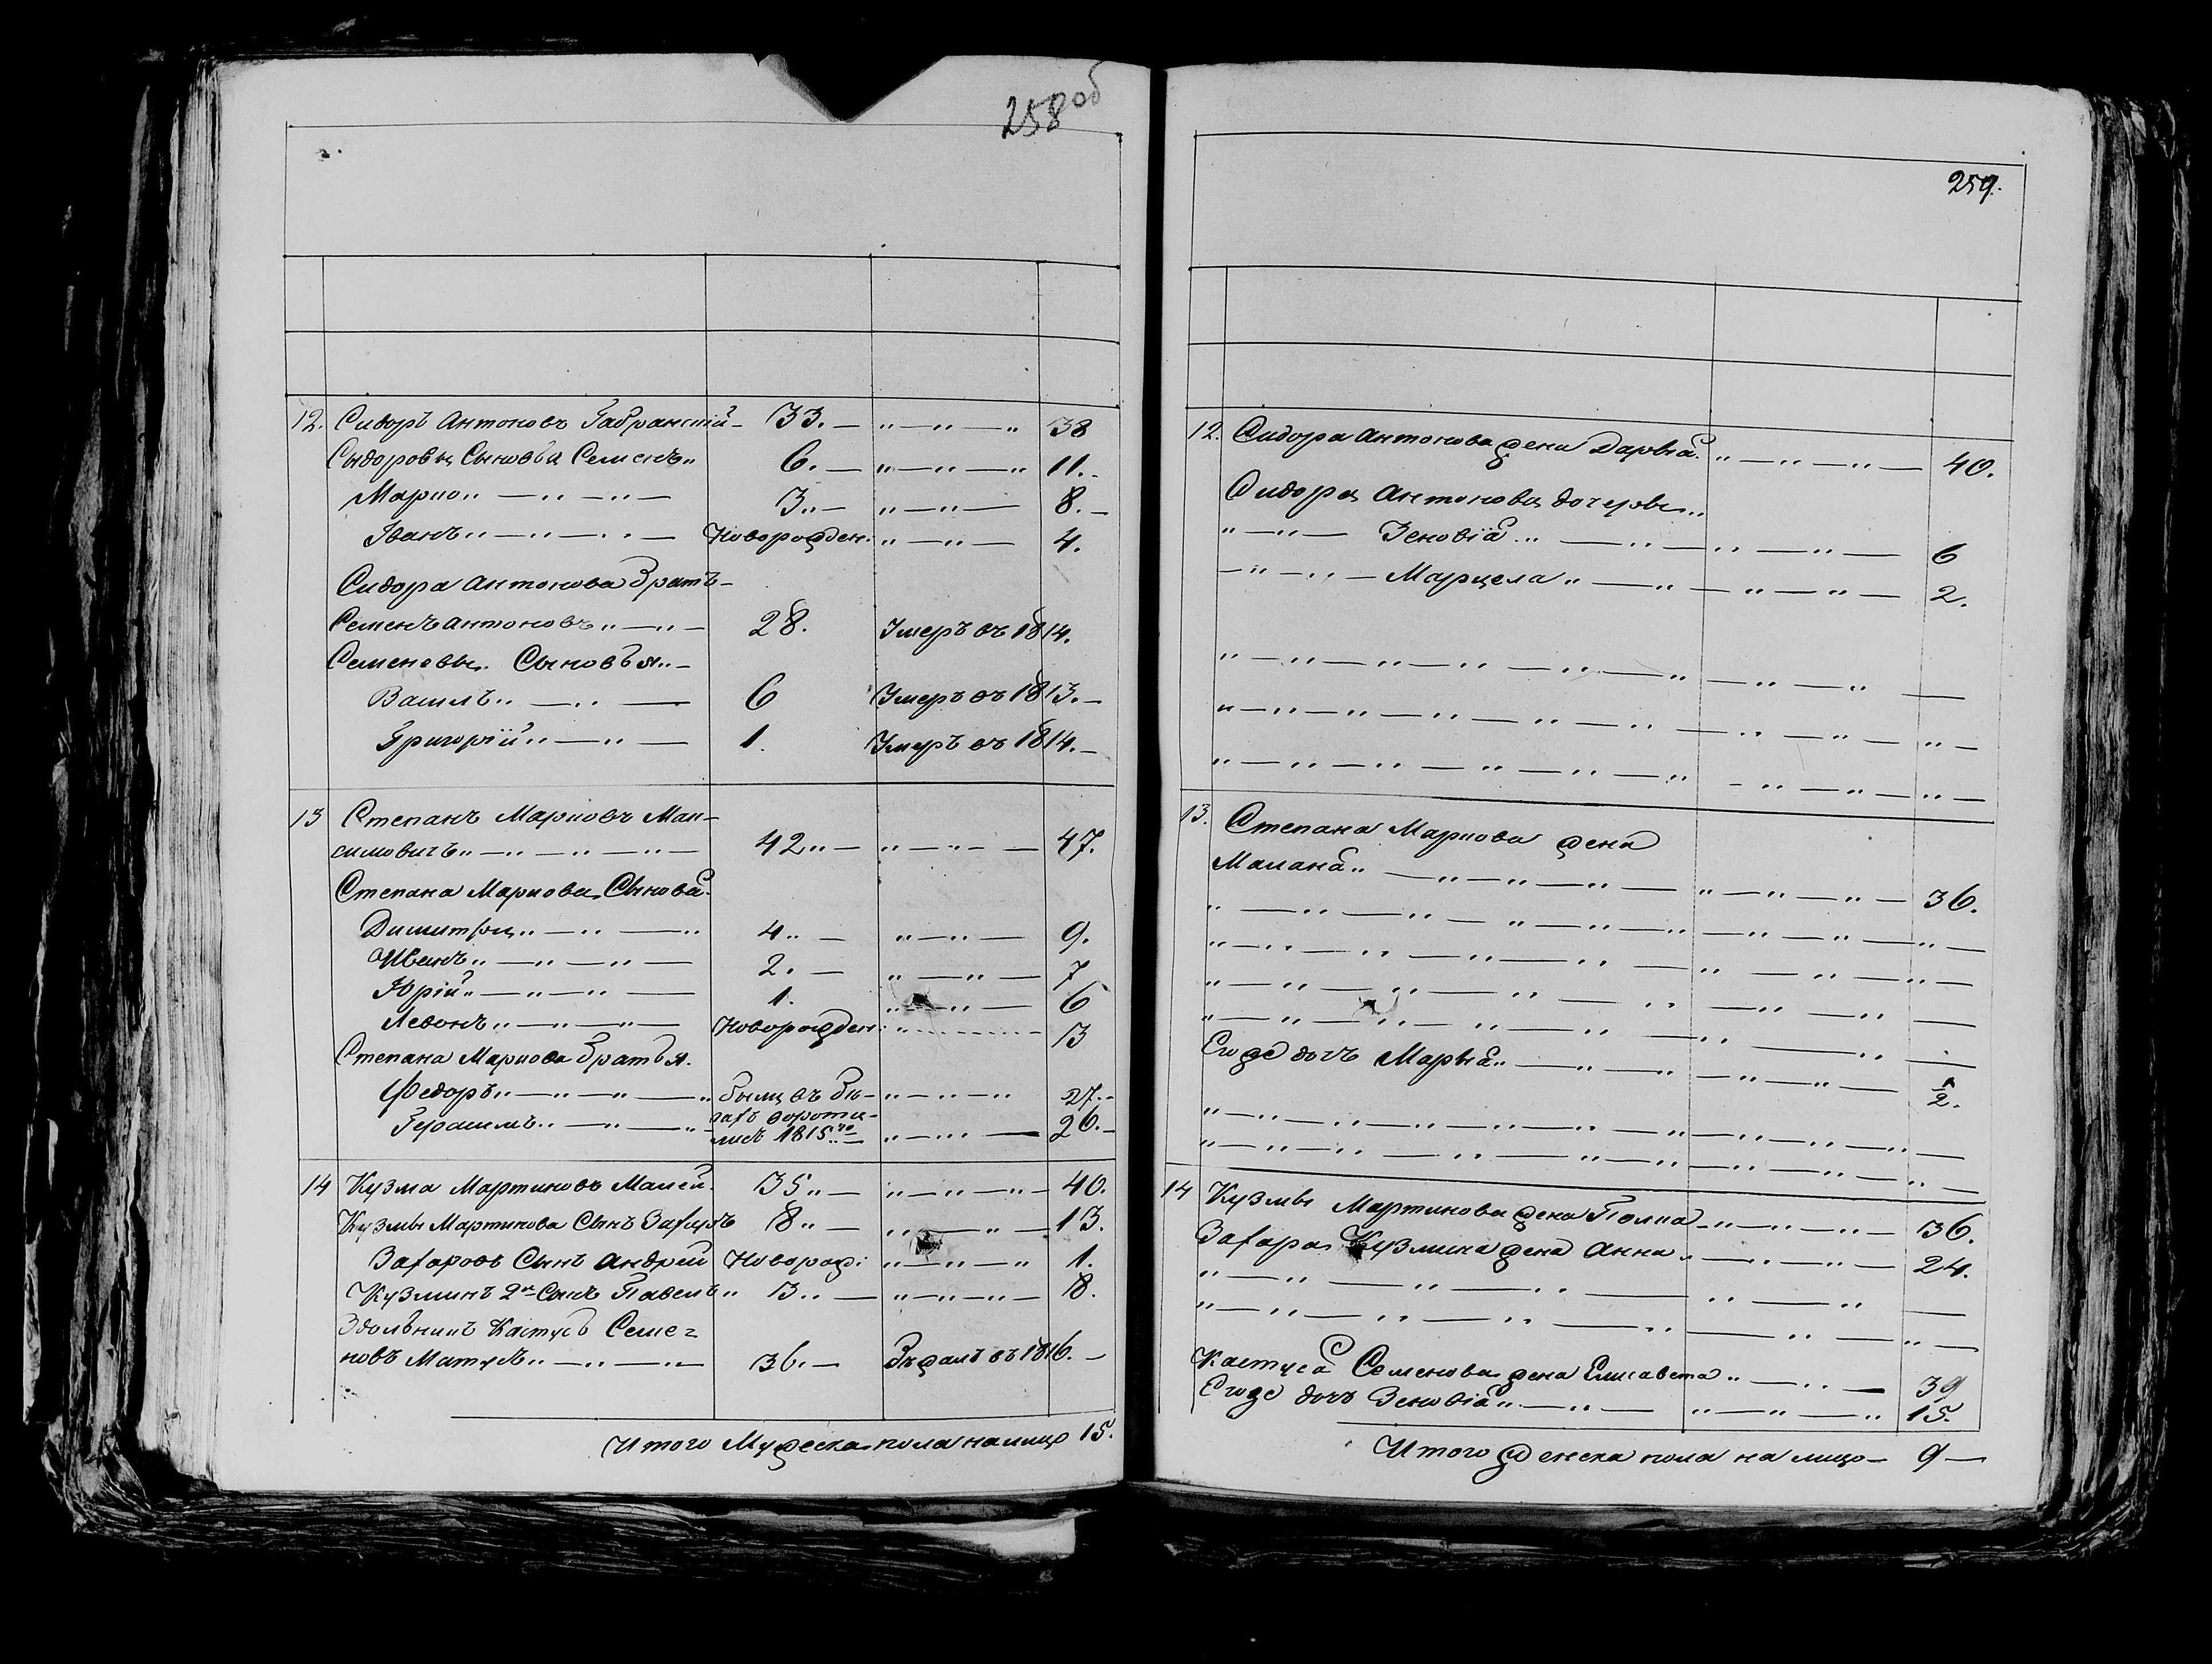 258 об
12. Сидоръ Антоновъ Габранскiй 33. 38
Сыдоровы Сыновья Семенъ 6. 11.
Марко 3. 8.
Iванъ Новорожден. 4.
Сидора Антонова Братъ
Семенъ Антоновъ 28. Умеръ въ 1814.
Семеновы Сыновья
Василь 6 Умеръ въ 1813.
Григорiй 1. Умеръ въ 1814.
13 Степанъ Марковъ Мак-
симовичъ 42 47.
Степана Маркова Сыновя
Димитры 4 9.
Иванъ 2. 7
Юрiй 1. 6
Левонъ Новорожден. 13
Степана Маркова Братья.
Федоръ были въ бе- 27.
Герасимъ гахъ вороти- 26.
лись 1815го
14 Кузма Мартиновъ Малей. 35 40.
Кузмы Мартинова Сынъ Захаръ 8 13.
Захаровъ Сынъ АндрейНоворож: 1.
Кузминъ 2й Сынъ Павелъ 3 8.
Здольникъ Кастусь Семе-
новъ Матусъ 36. Збежалъ въ 1816.
Итого Мужеска пола налицо 15.
259.
12. Сидора Антонова жена Дарья 40.
Сидора Антонова дочеровы
Зеновiя 6
Марцела 2.
13. Степана Маркова жена
Малана 36.
Егоже дочъ Марья 2.
14 Кузмы Мартинова жена Полка 36.
Захара Кузмина жена Анна 24.
Кастуся Семенова жена Елисавета 39
Егоже дочъ Зеновiя 15.
Итого женска пола на лицо 9